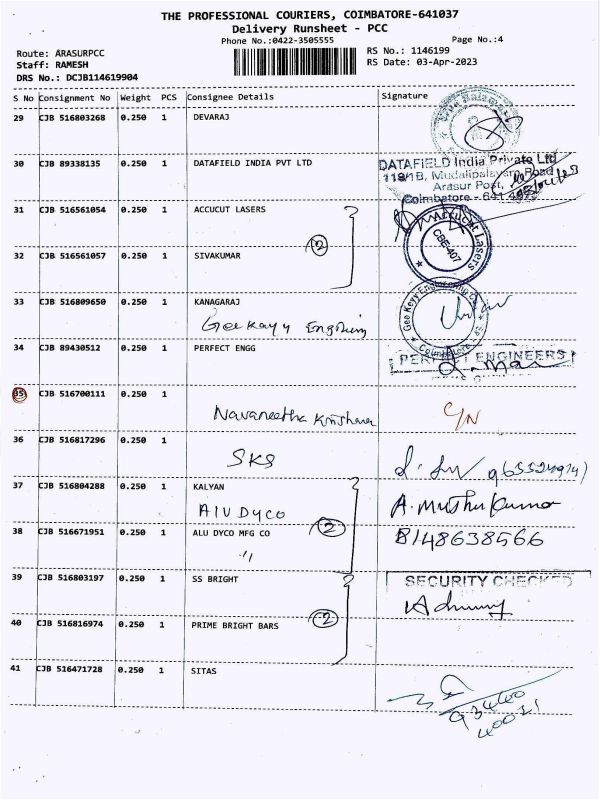 THE PROFESSIONAL COURIERS, COIMBATORE-641037
Delivery Runsheet - PCC
Phone No.:0422-3505555
Page No.:4
Route: ARASURPCC
RS No.: 1146199
Staff: RAMESH
RS Date: 03-Apr-2023
DRS No.: DCJB114619904
S No Consignment No Weight PCS Consignee Details Signature
29 CJB 516803268 0.250 1 DEVARAJ
30 CJB 89338135 0.250 1 DATAFIELD INDIA PVT LTD
DATAFIELD India Private Ltd
118/1B, Mudalipalayam Road
Arasur Post,
Coimbatore - 641 407
31 CJB 516561054 0.250 1 ACCUCUT LASERS
Accucut Lasers
CBE-407
2
32 CJB 516561057 0.250 1 SIVAKUMAR
33 CJB 516809650 0.250 1 KANAGARAJ
Gee Kayy Engineering
Coimbatore
34 CJB 89430512 0.250 1 PERFECT ENGG
PERFECT ENGINEERS
35 CJB 516700111 0.250 1
Navaneetha Krishna
C/N
36 CJB 516817296 0.250 1
SKS
37 CJB 516804288 0.250 1 KALYAN
Alu Dyco
A. Muthu Kumar
38 CJB 516671951 0.250 1 ALU DYCO MFG CO
2
8148638566
"
39 CJB 516803197 0.250 1 SS BRIGHT
SECURITY CHECKED
40 CJB 516816974 0.250 1 PRIME BRIGHT BARS
2
41 CJB 516471728 0.250 1 SITAS
93440
40021